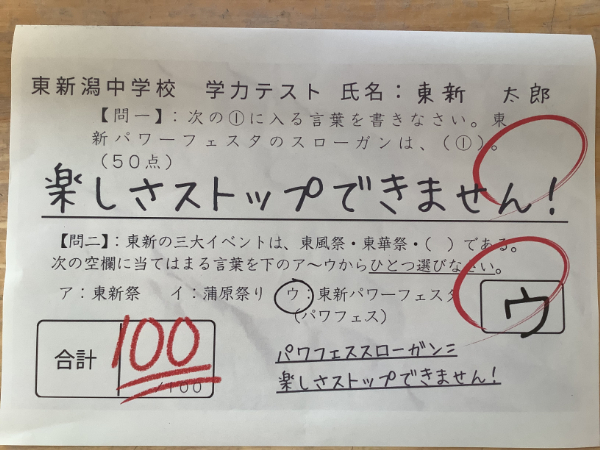 東新潟中学校 学力テスト 氏名：東新 太郎
【問一】：次の①に入る言葉を書きなさい。東
新パワーフェスタのスローガンは、（①）。
（50点）
楽しさストップできません！
【問二】：東新の三大イベントは、東風祭・東華祭・（ ）である。
次の空欄に当てはまる言葉を下のア～ウからひとつ選びなさい。
ア：東新祭 イ：蒲原祭り ウ：東新パワーフェスタ
（パワフェス）
ウ
合計 100
/100
パワフェススローガン=
楽しさストップできません！